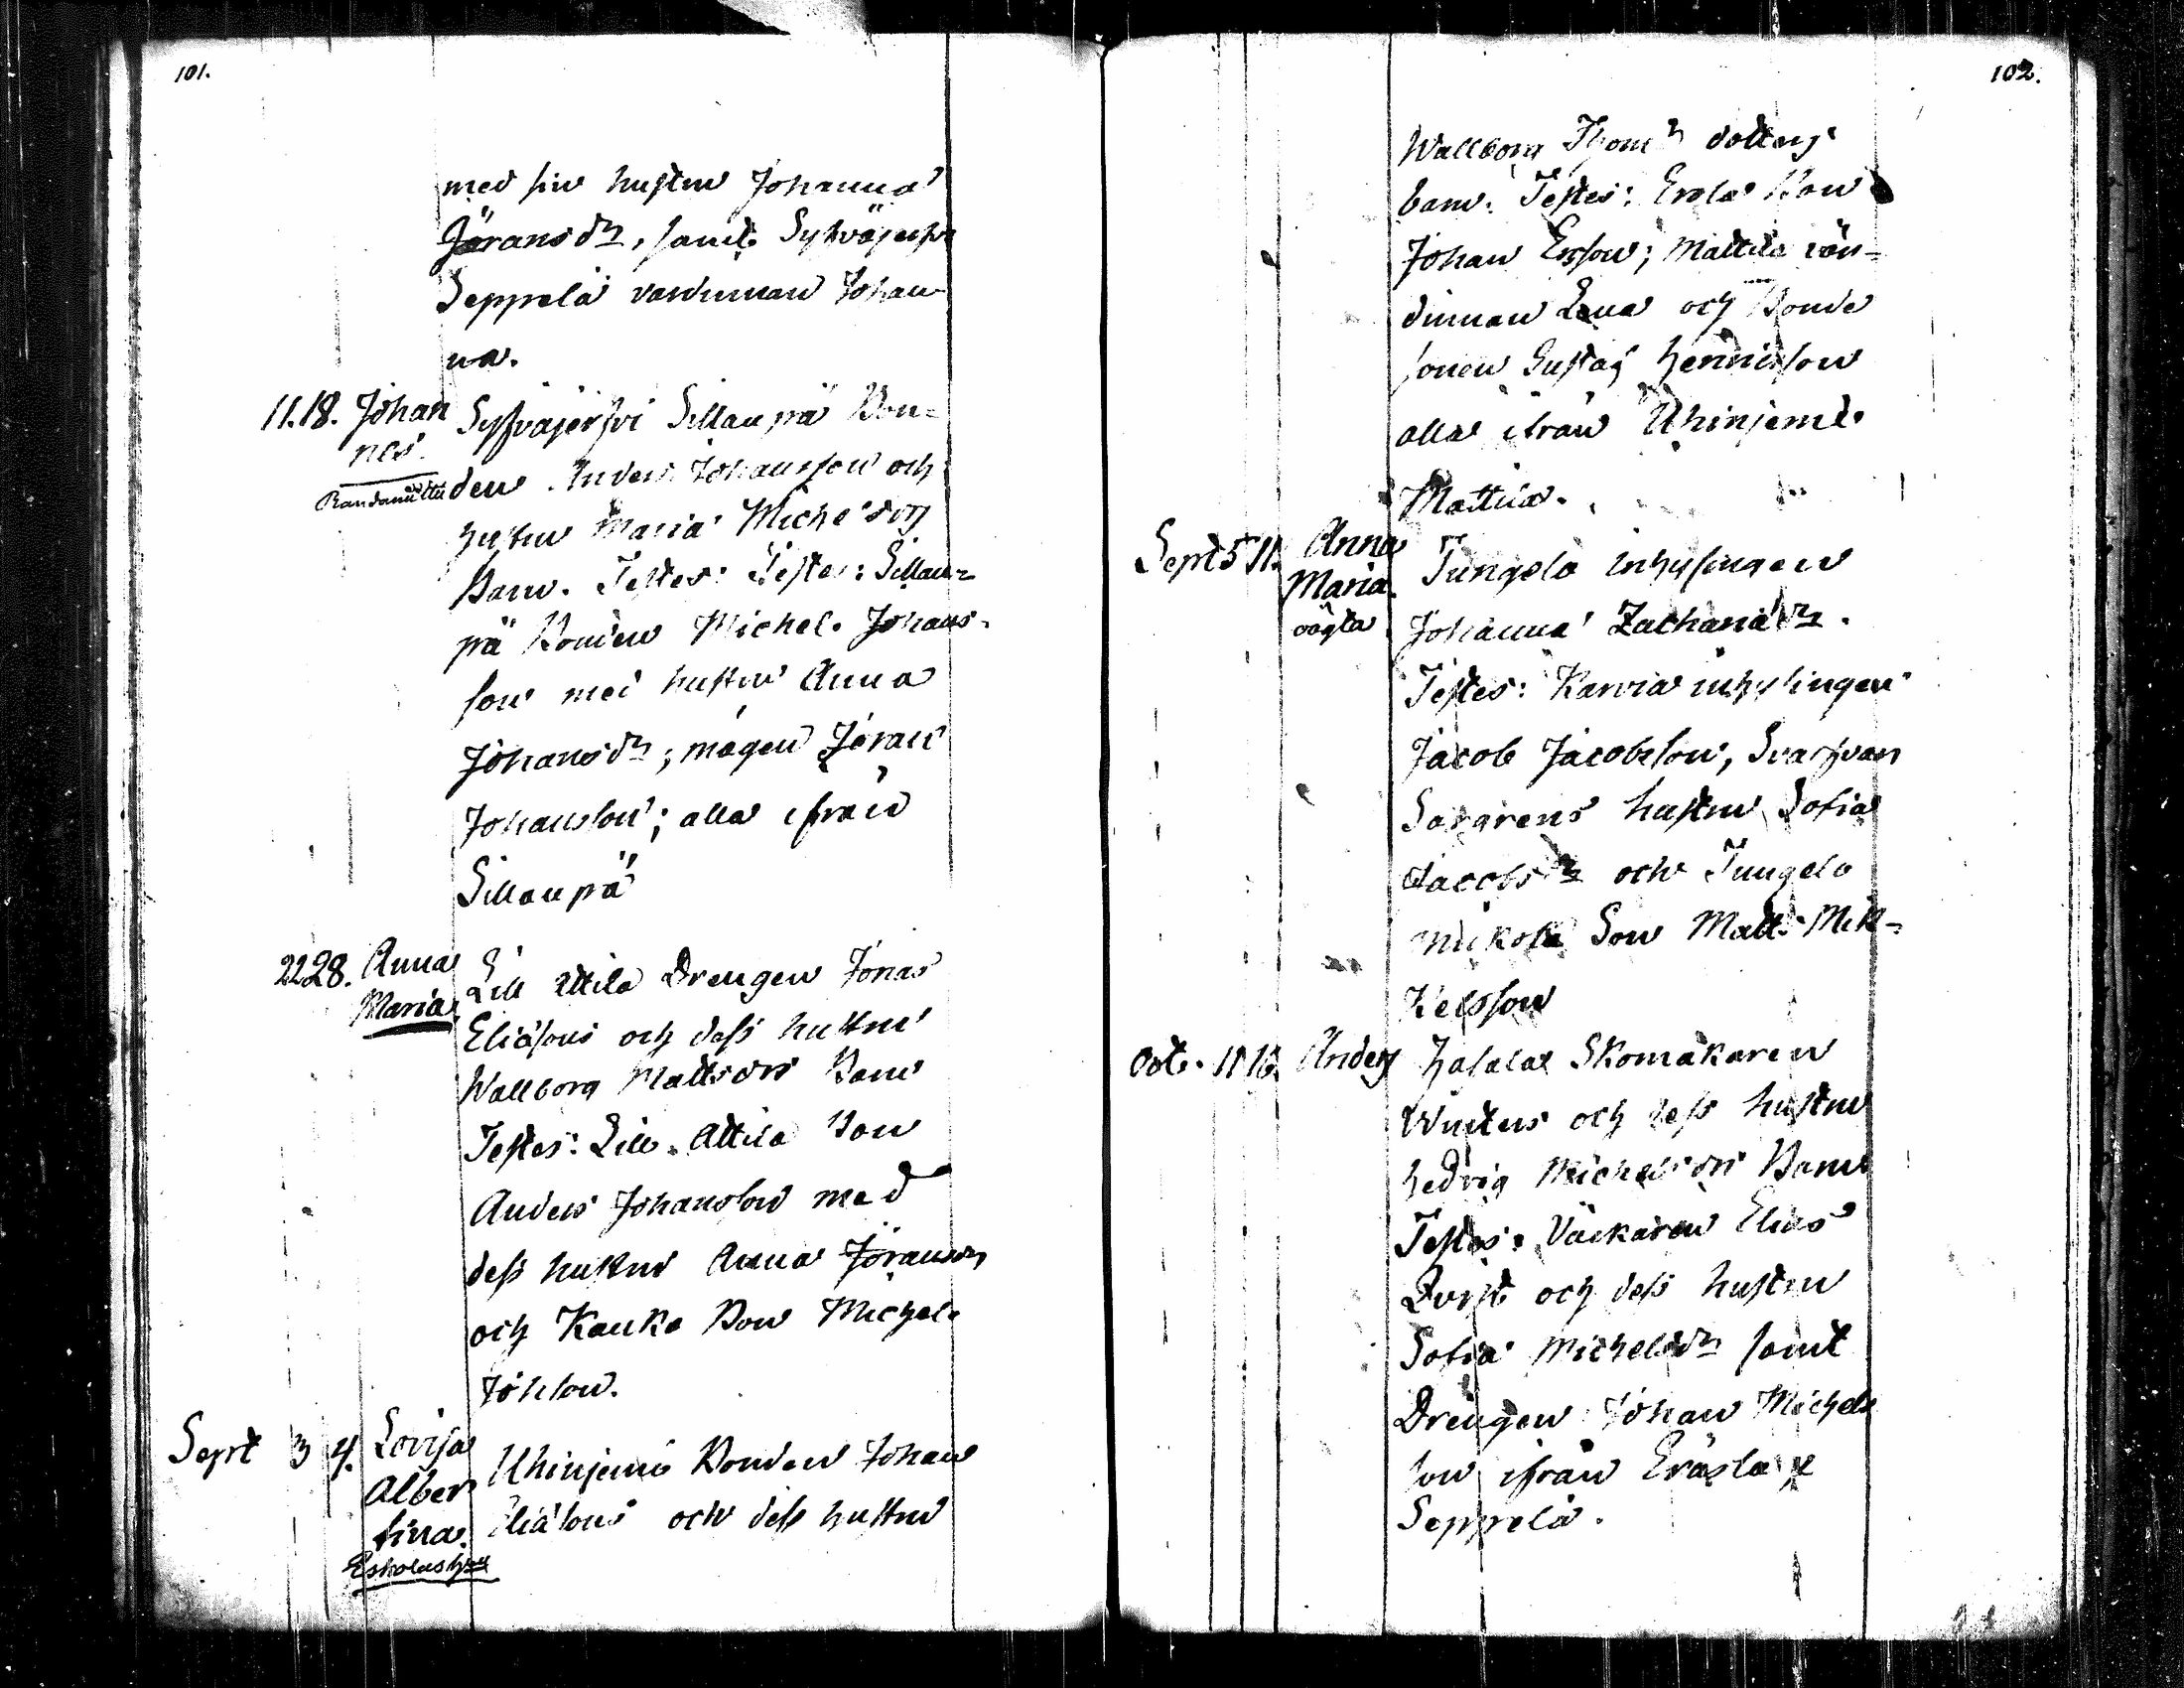 101.
med sin hustru Johanna
Jöransdr, samt Sysväjerfvi
Seppelä värdinnan Johan-
na.
11. 18. Johan
nes.
Sysväjerfvi Sillanpä Bon-
den Anders Johansson och
hustru Maria Michelsdrs
Barn. Testes: Testes: Sillan-
pä Bonden Michel Johans-
son med hustru Anna
Johansdr; mågen Jöran
Johansson; alla ifrån
Sillanpä
22 28. Anna
Maria
Lill Attila Drengen Jonas
Eliäsons och dess hustru
Wallborg Mattsdrs Barn
Testes: Lill. Attila Bon
Anders Johansson med
dess hustru Anna Jöransdr
och Kauka Bon Michel
Johsson.
Sept 3 4. Lovisa
Alber
tina.
Uhinjemi Bonden Johan
Eliäsons och dess hustru
102.
Wallborg Thomdr dotters
barn. Testes: Erola Bon
Johan Ersson; Mattila vär-
dinnan Lena och Bonde
sonen Gustaf Henricsson
alla ifrån Uhinjemi
Mattila.
Sept 5 11. Anna
Maria
oägta
Jungelo inhysingen
Johanna Zachariädr.
Testes: Karvia inhysingen
Jacob Jacobsson, Svarfvar
hustru Sofia
Jacobsdr och Jungelo
Mickola Son Matts Mik-
kelsson
Oct. 11 16. Anders
Skomakaren
och dess hustru
Hedvig Michelsdrs Barn
Testes: Väckaren Elias
Qvist och dess hustru
Sofia Michelsdr samt
Drengen Johan Michels
son ifrån Eräsla
Seppelä.